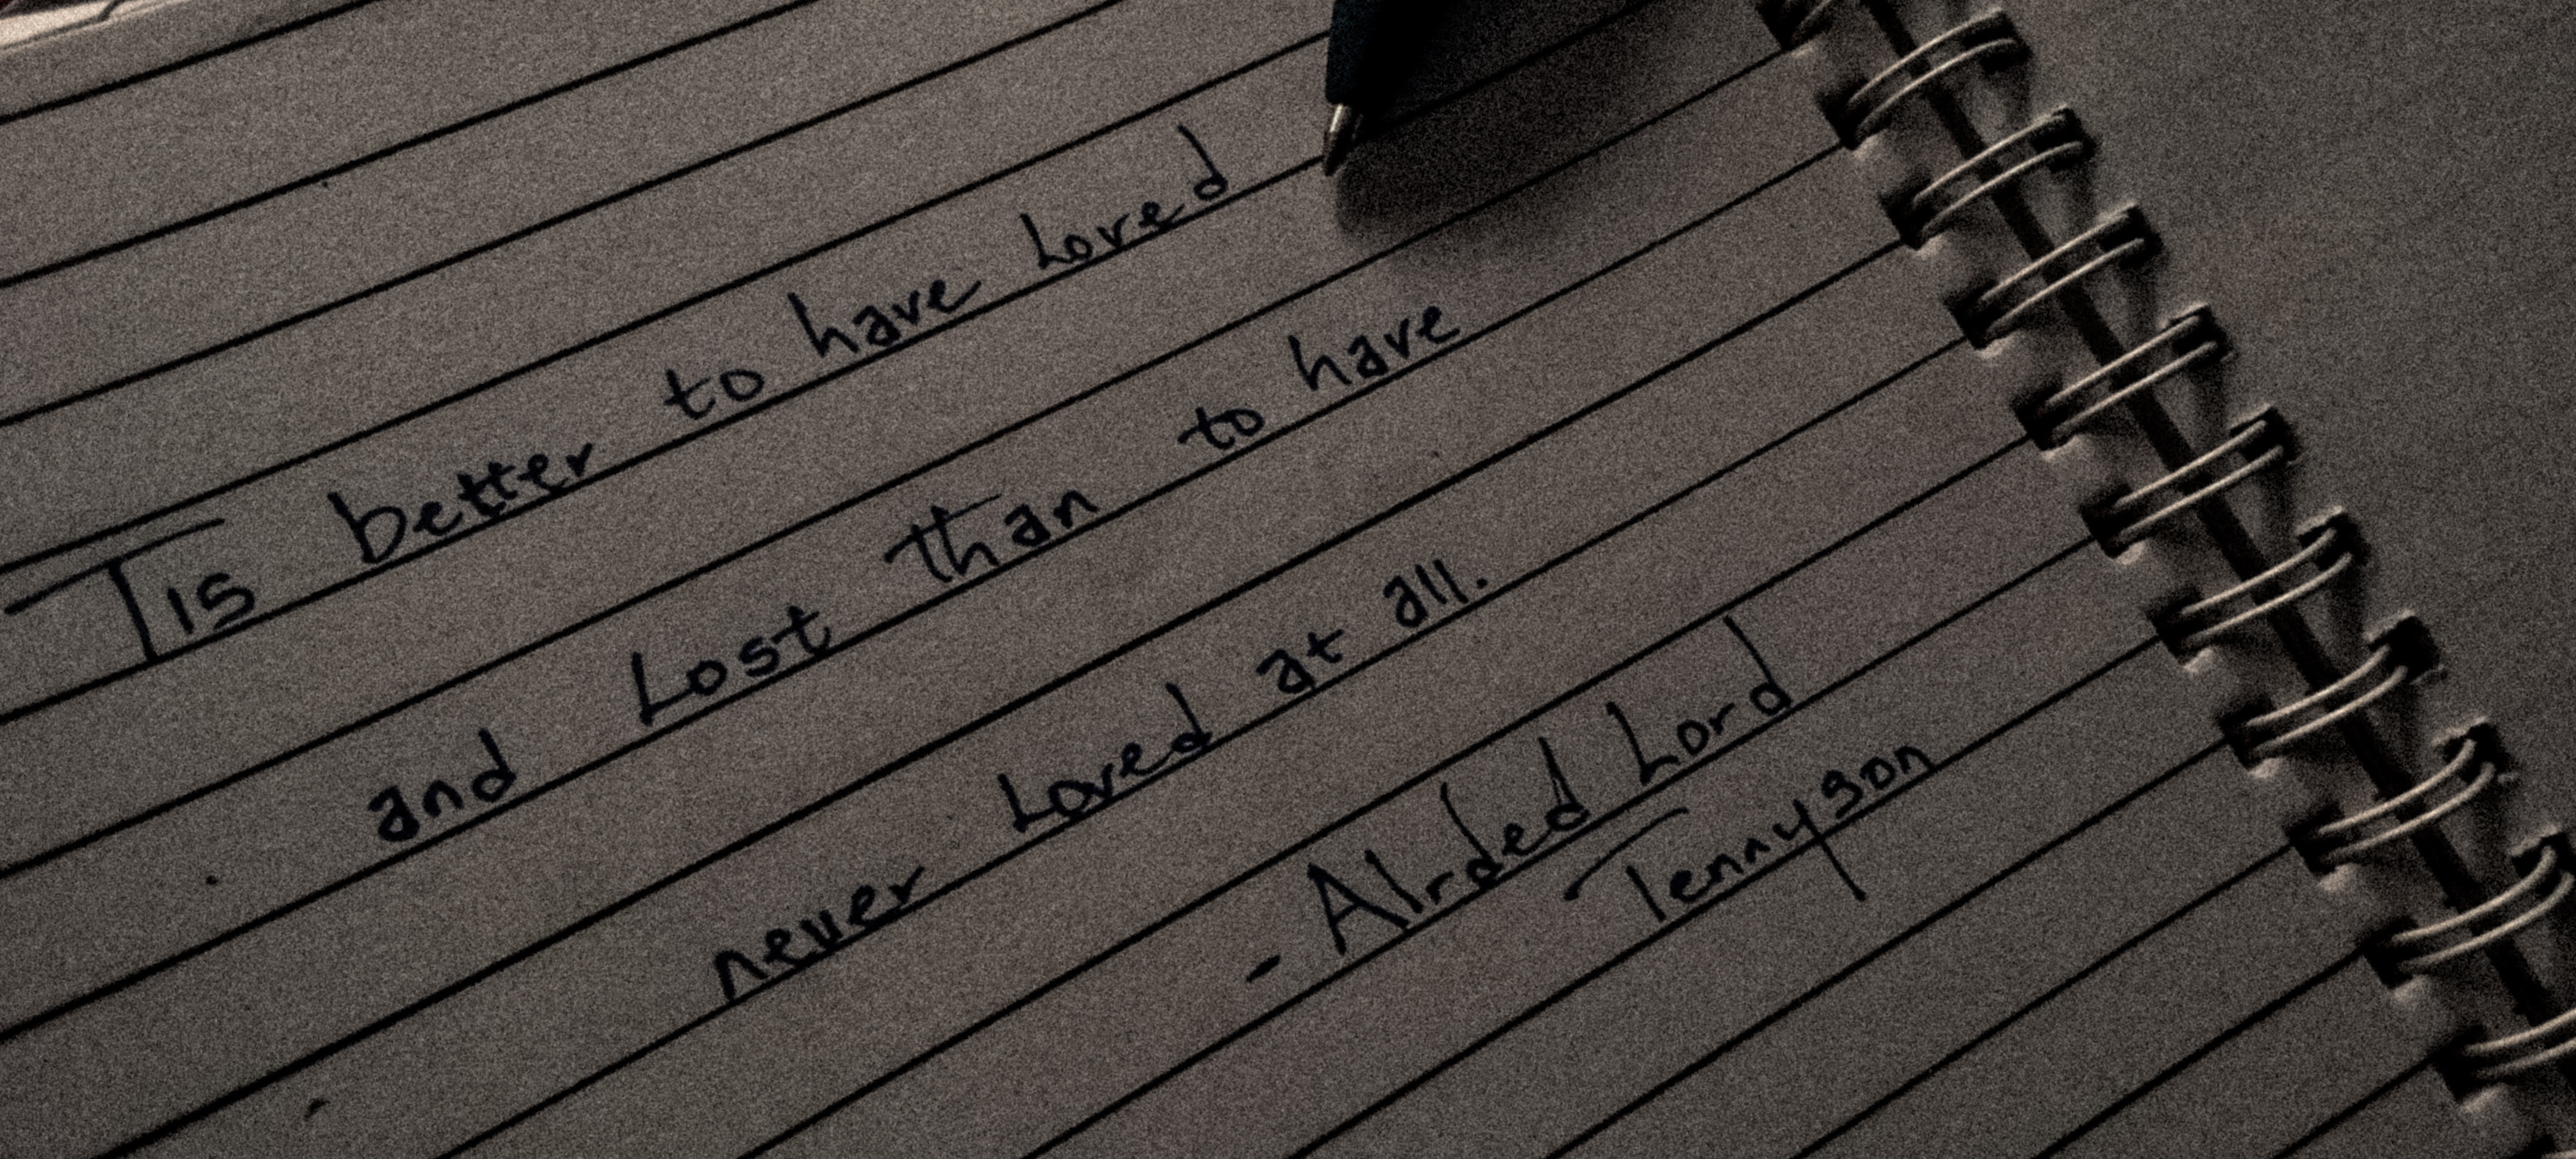 Tis better to have Loved
and Lost than to have
never Loved at all.
- Alrded Lord
Tennyson